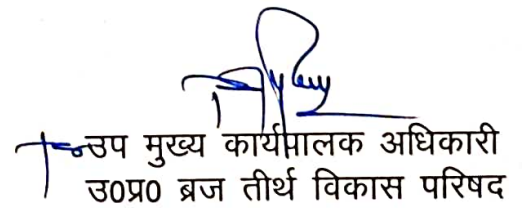 उप मुख्य कार्यपालक अधिकारी
उ0प्र0 ब्रज तीर्थ विकास परिषद